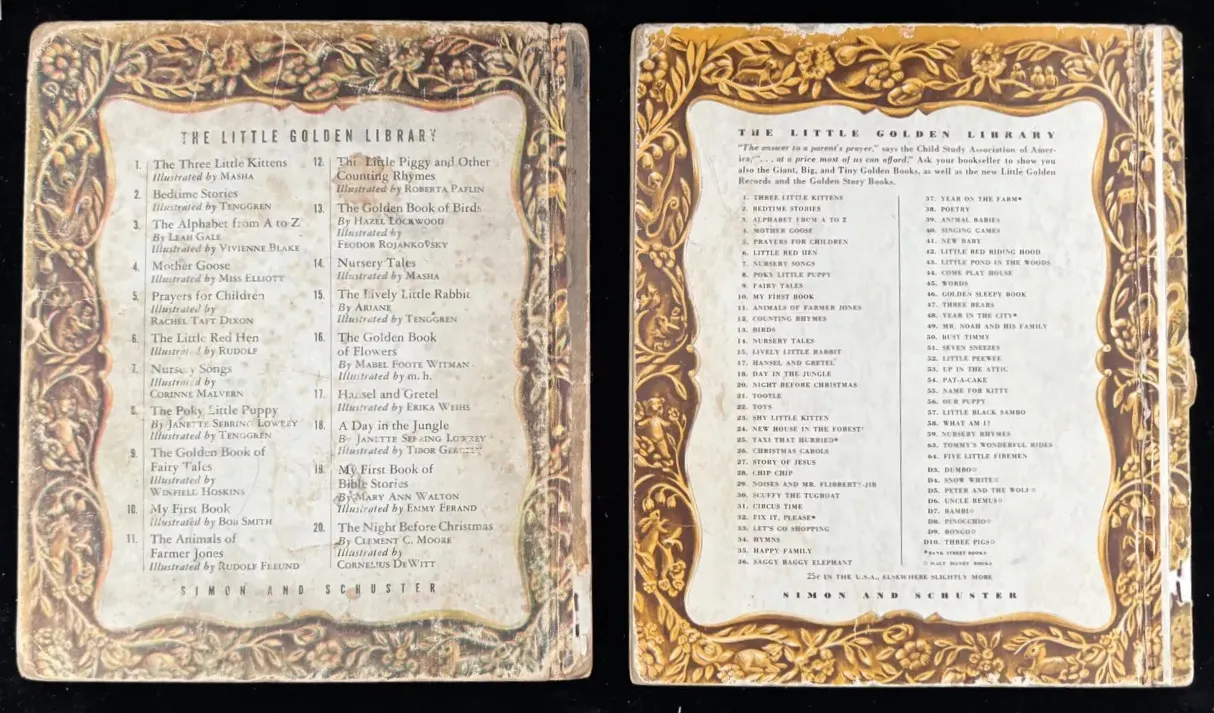 THE LITTLE GOLDEN LIBRARY
1. The Three Little Kittens
Illustrated by MASHA
2. Bedtime Stories
Illustrated by TENGGREN
3. The Alphabet from A to Z
By LEAH GALE
Illustrated by VIVIENNE BLAKE
4. Mother Goose
Illustrated by MISS ELLIOTT
5. Prayers for Children
Illustrated by
RACHEL TAFT DIXON
6. The Little Red Hen
Illustrated by RUDOLF
7. Nursery Songs
Illustrated by
CORINNE MALVERN
8. The Poky Little Puppy
By JANETTE SEBRING LOWREY
Illustrated by TENGGREN
9. The Golden Book of
Fairy Tales
Illustrated by
WINFIELD HOSKINS
10. My First Book
Illustrated by BOB SMITH
11. The Animals of
Farmer Jones
Illustrated by RUDOLF FREUND
12. This Little Piggy and Other
Counting Rhymes
Illustrated by ROBERTA PAFLIN
13. The Golden Book of Birds
By HAZEL LOCKWOOD
Illustrated by
FEODOR ROJANKOVSKY
14. Nursery Tales
Illustrated by MASHA
15. The Lively Little Rabbit
By ARIANE
Illustrated by TENGGREN
16. The Golden Book
of Flowers
By MABEL FOOTE WITMAN
Illustrated by m. h.
17. Hansel and Gretel
Illustrated by ERIKA WEIHS
18. A Day in the Jungle
By JANETTE SEBRING LOWREY
Illustrated by TIBOR GERGELY
19. My First Book of
Bible Stories
By MARY ANN WALTON
Illustrated by EMMY FERAND
20. The Night Before Christmas
By CLEMENT C. MOORE
Illustrated by
CORNELIUS DEWITT
SIMON AND SCHUSTER
THE LITTLE GOLDEN LIBRARY
"The answer to a parent's prayer," says the Child Study Association of Amer-
ica; ". . . at a price most of us can afford." Ask your bookseller to show you
also the Giant, Big, and Tiny Golden Books, as well as the new Little Golden
Records and the Golden Story Books.
1. THREE LITTLE KITTENS
2. BEDTIME STORIES
3. ALPHABET FROM A TO Z
4. MOTHER GOOSE
5. PRAYERS FOR CHILDREN
6. LITTLE RED HEN
7. NURSERY SONGS
8. POKY LITTLE PUPPY
9. FAIRY TALES
10. MY FIRST BOOK
11. ANIMALS OF FARMER JONES
12. COUNTING RHYMES
13. BIRDS
14. NURSERY TALES
15. LIVELY LITTLE RABBIT
17. HANSEL AND GRETEL
18. DAY IN THE JUNGLE
20. NIGHT BEFORE CHRISTMAS
21. TOOTLE
22. TOYS
23. SHY LITTLE KITTEN
24. NEW HOUSE IN THE FOREST*
25. TAXI THAT HURRIED*
26. CHRISTMAS CAROLS
27. STORY OF JESUS
28. CHIP CHIP
29. NOISES AND MR. FLIBBERTY-JIB
30. SCUFFY THE TUGBOAT
31. CIRCUS TIME
32. FIX IT, PLEASE*
33. LET'S GO SHOPPING
34. HYMNS
35. HAPPY FAMILY
36. SAGGY BAGGY ELEPHANT
37. YEAR ON THE FARM*
38. POETRY
39. ANIMAL BABIES
40. SINGING GAMES
41. NEW BABY
42. LITTLE RED RIDING HOOD
43. LITTLE POND IN THE WOODS
44. COME PLAY HOUSE
45. WORDS
46. GOLDEN SLEEPY BOOK
47. THREE BEARS
48. YEAR IN THE CITY*
49. MR. NOAH AND HIS FAMILY
50. BUSY TIMMY
51. SEVEN SNEEZES
52. LITTLE PEEWEE
53. UP IN THE ATTIC
54. PAT-A-CAKE
55. NAME FOR KITTY
56. OUR PUPPY
57. LITTLE BLACK SAMBO
58. WHAT AM I?
59. NURSERY RHYMES
63. TOMMY'S WONDERFUL RIDES
64. FIVE LITTLE FIREMEN
D3. DUMBO○
D4. SNOW WHITE○
D5. PETER AND THE WOLF○
D6. UNCLE REMUS○
D7. BAMBI○
D8. PINOCCHIO○
D9. BONGO○
D10. THREE PIGS○
*BANK STREET BOOKS
○ WALT DISNEY BOOKS
25¢ IN THE U.S.A., ELSEWHERE SLIGHTLY MORE
SIMON AND SCHUSTER